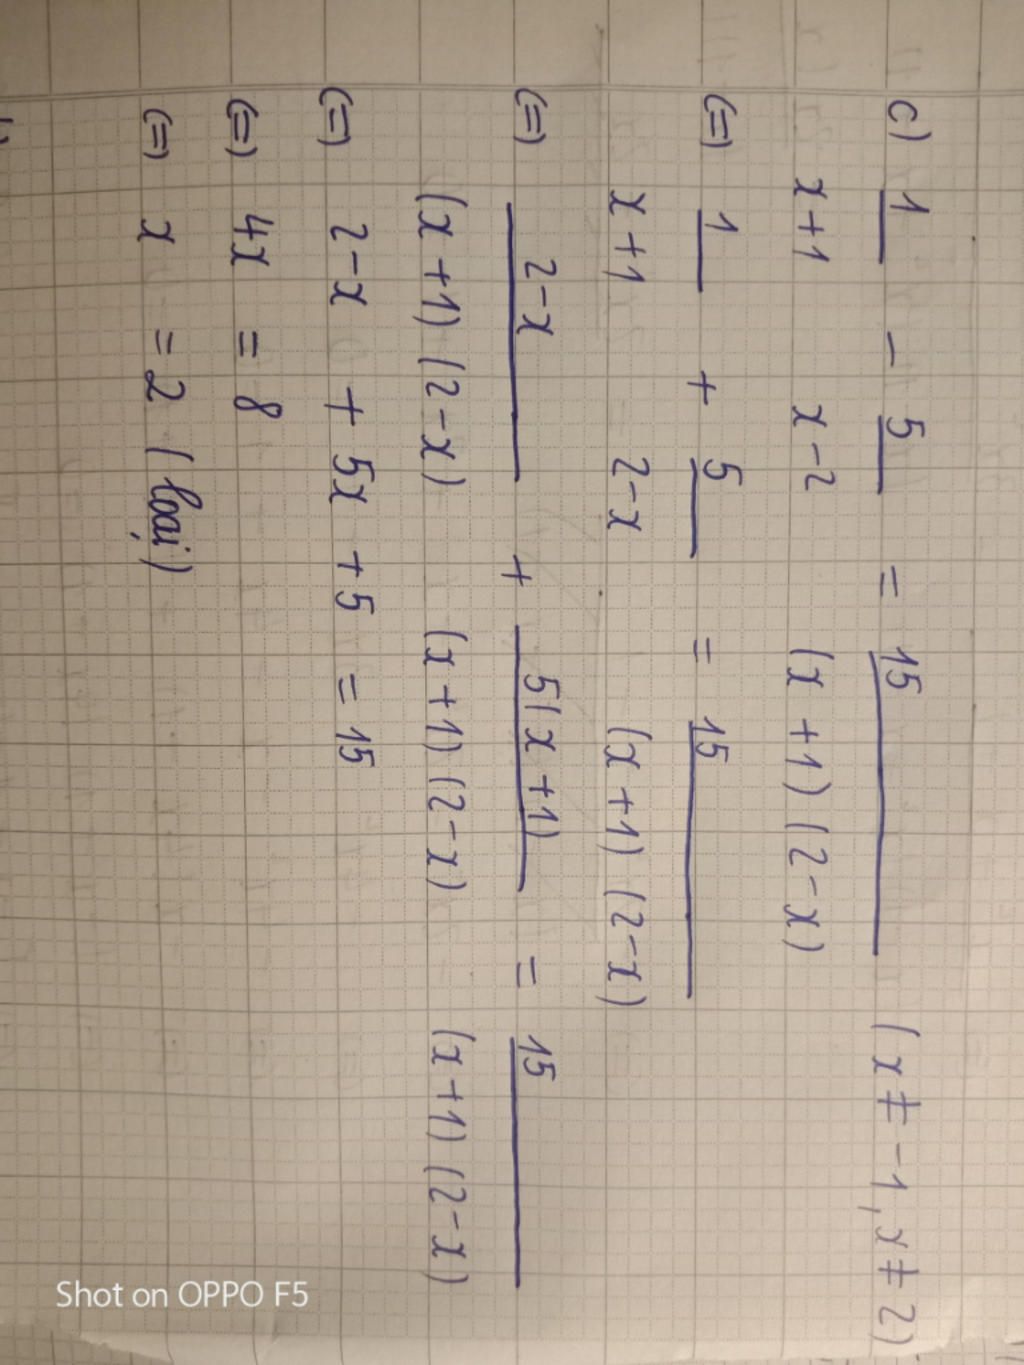 c) 1/(x+1) - 5/(x-2) = 15/((x+1)(2-x)) (x ≠ -1, x ≠ 2)
(=) 1/(x+1) + 5/(2-x) = 15/((x+1)(2-x))
(=) (2-x)/((x+1)(2-x)) + 5(x+1)/((x+1)(2-x)) = 15/((x+1)(2-x))
(=) 2-x + 5x + 5 = 15
(=) 4x = 8
(=) x = 2 (loại)
Shot on OPPO F5